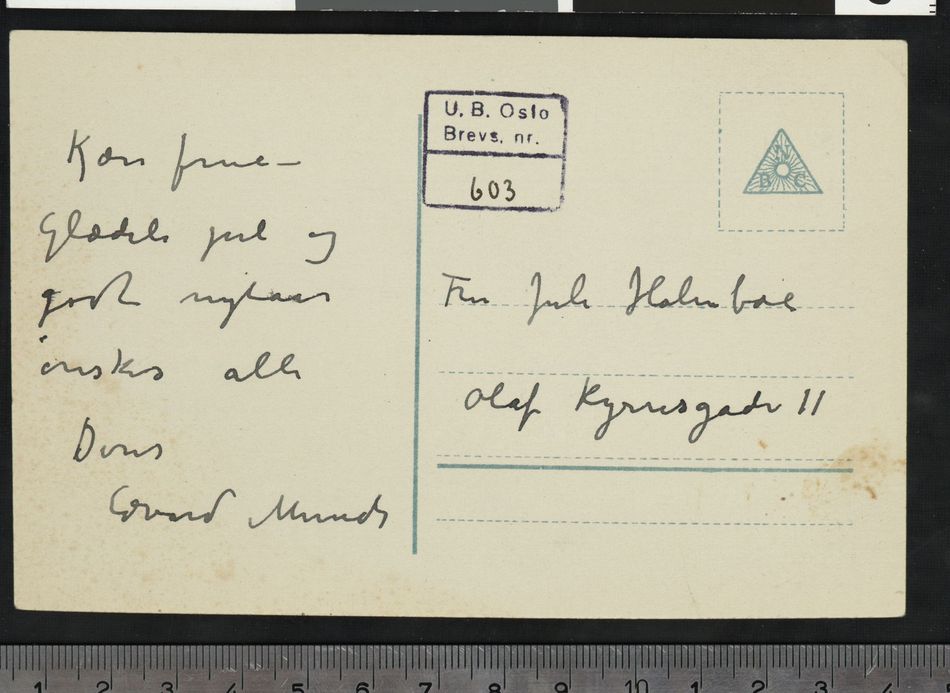 Kære frue –
Glædelig jul og
godt nytaar
ønskes alle
Deres
Edvard Munch
U. B. Oslo
Brevs. nr.
603
N
B C
Fru Juls Holmboe
Olaf Kyrresgade 11
1 2 3 4 5 6 7 8 9 10 1 2 3 4